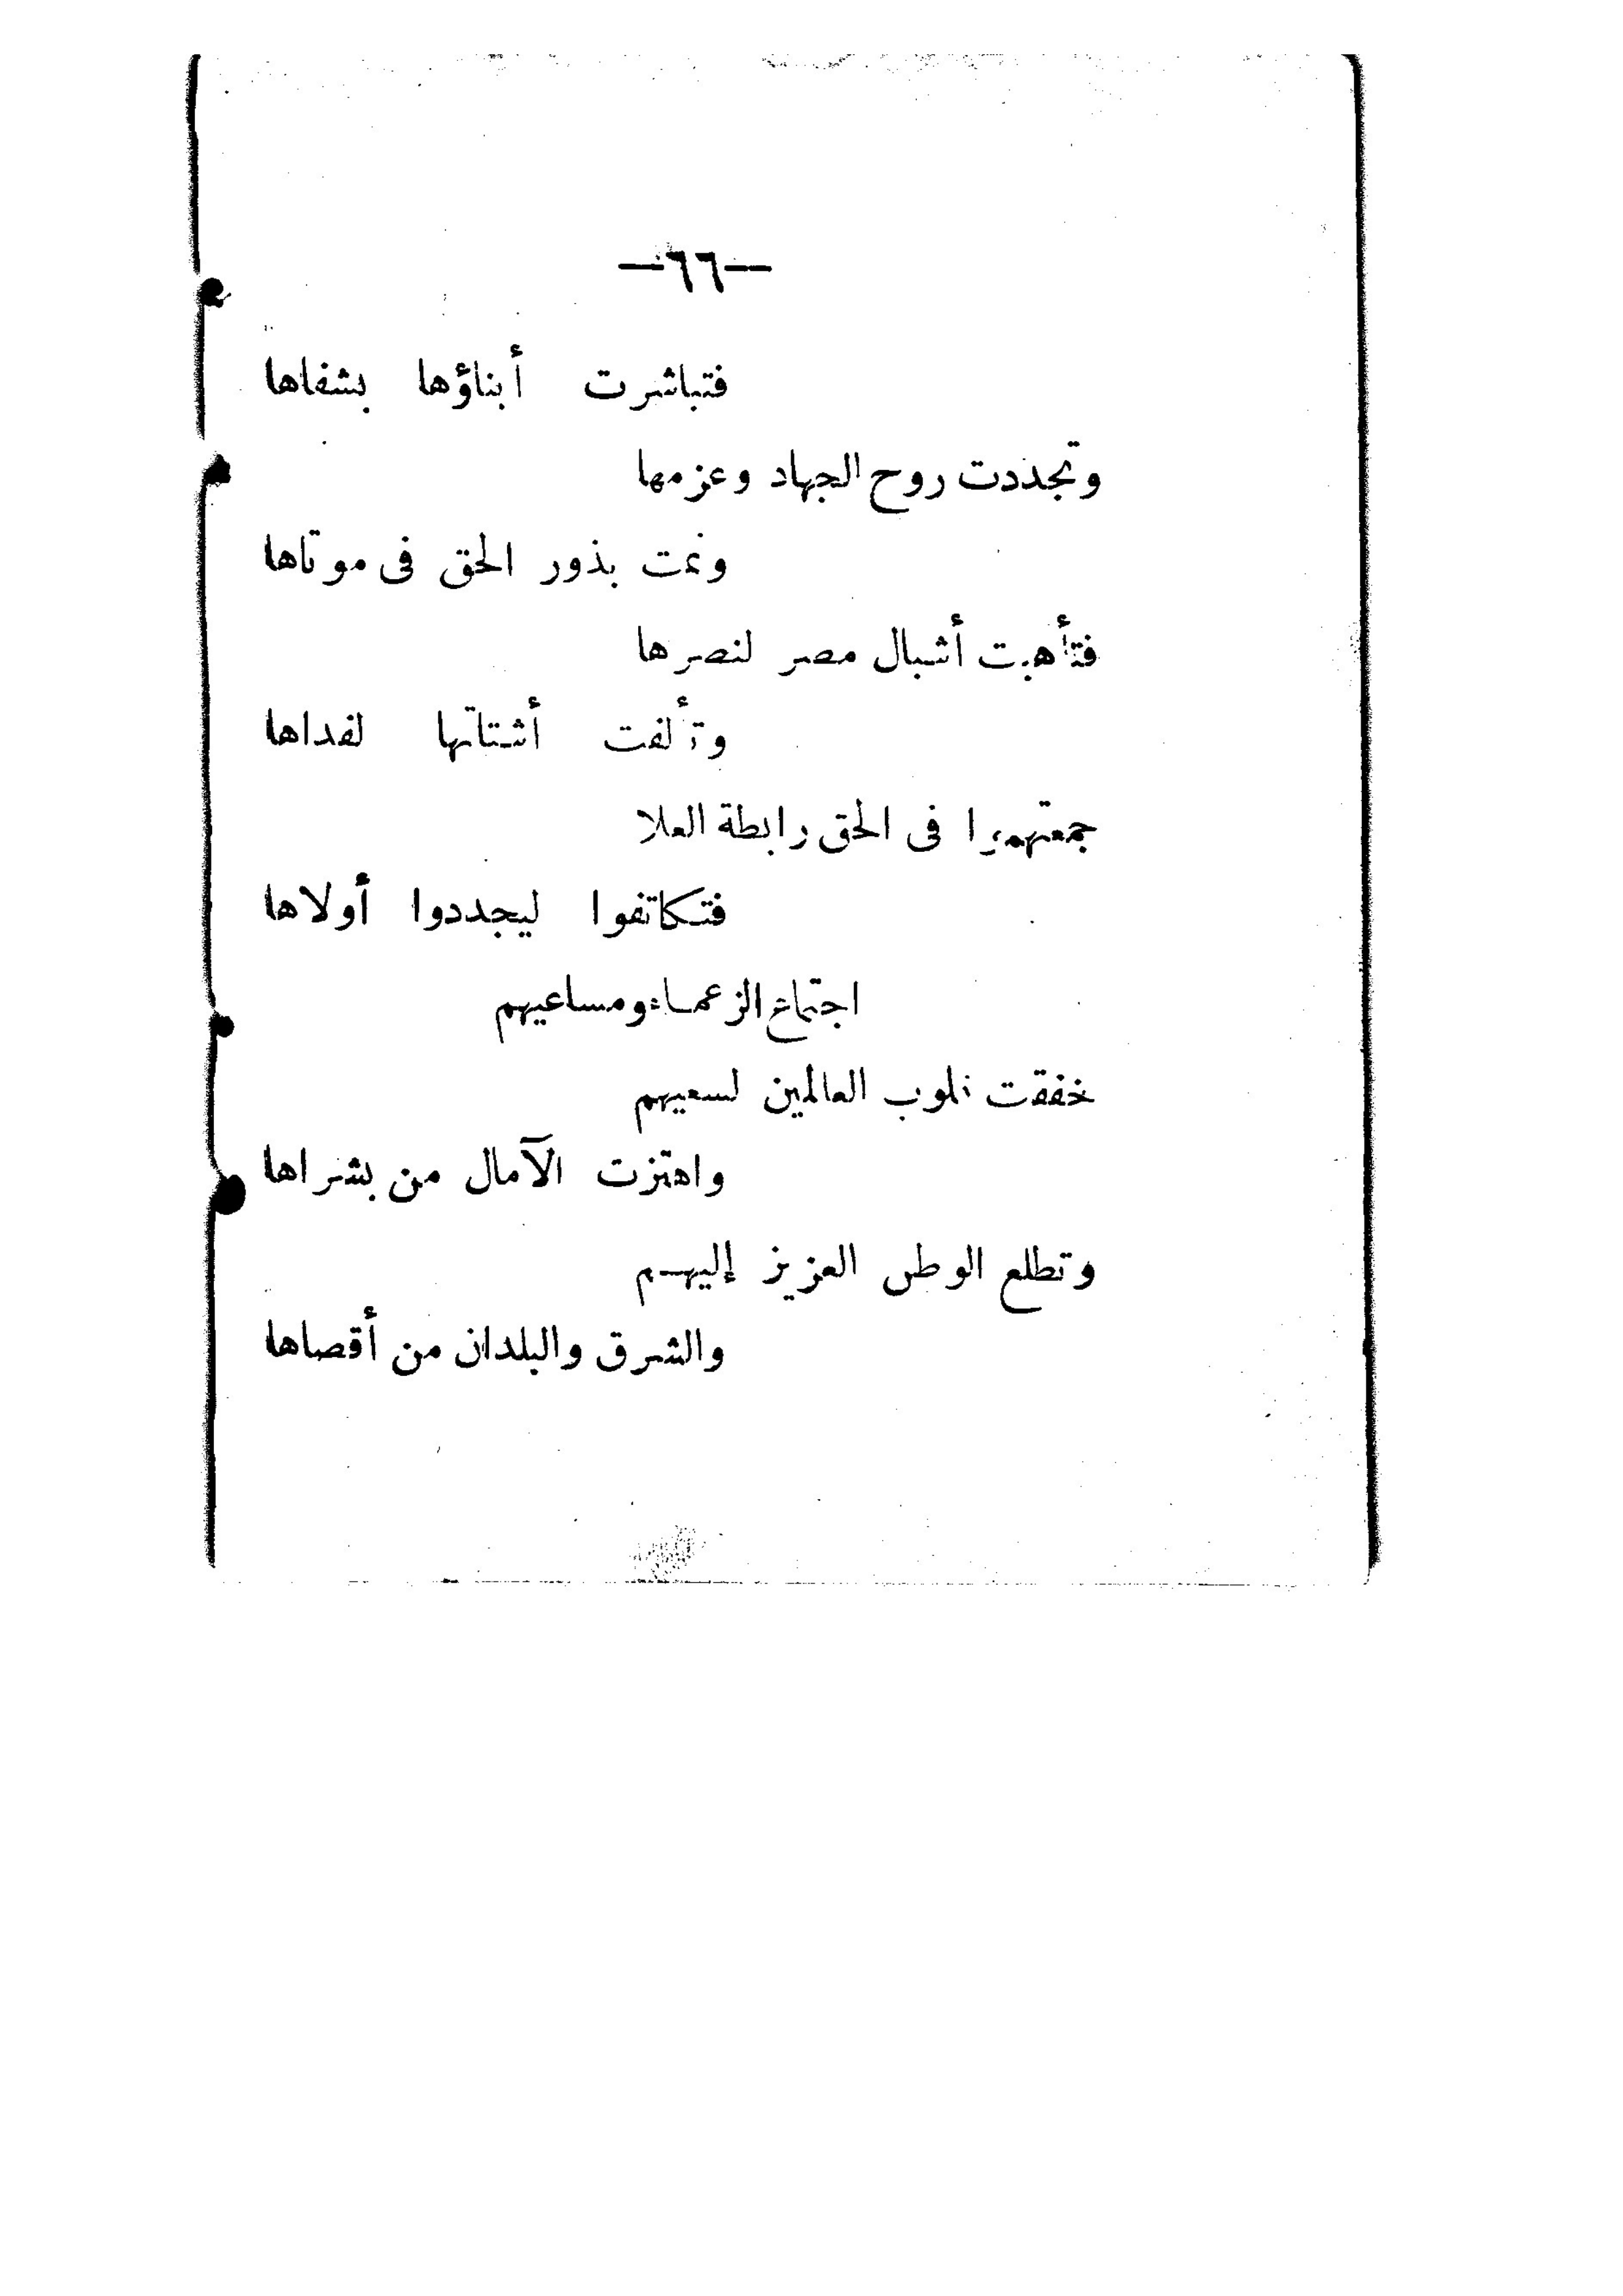 —٦٦—
فتباشرت أبناؤها بشفاها
وتجددت روح الجهاد وعزمها
ونمت بذور الحق فى موتاها
فتأهبت أشبال مصر لنصرها
وتألفت أشتاتها لفداها
فى الحق رابطة العلا
فتكاتفوا ليجددوا أولاها
اجتماع الزعماء ومساعيهم
خفقت قلوب العالمين لسعيهم
واهتزت الآمال من بشراها
وتطلع الوطن العزيز إليهم
والشرق والبلدان من أقصاها